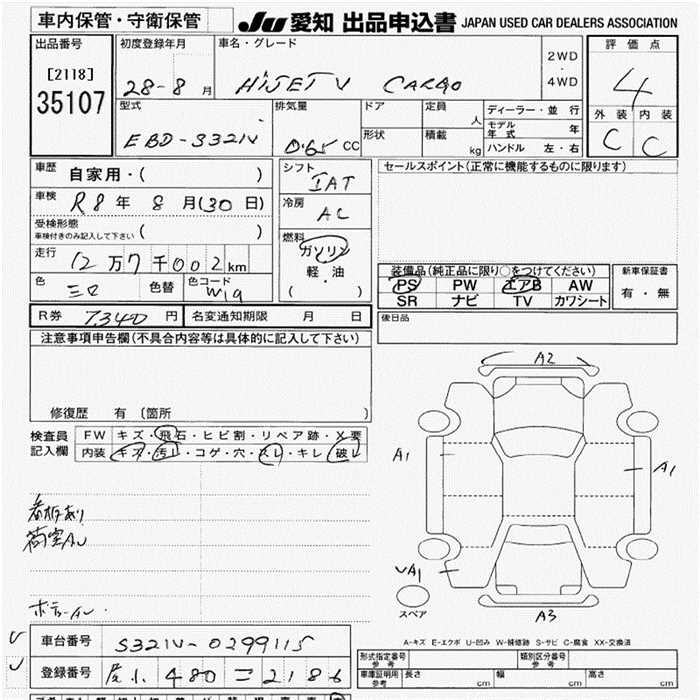 車内保管・守衛保管
JU 愛知 出品申込書 JAPAN USED CAR DEALERS ASSOCIATION
出品番号
[2118]
35107
初度登録年月
28-8 月
車名・グレード
HiJET V CARGO
2WD
・
4WD
評価点
4
外装 内装
C C
型式
EBD-S321V
排気量
0.65 CC
ドア
形状
定員
人
積載
kg
ディーラー・並行
モデル年式 年
ハンドル 左・右
車歴
自家用・( )
車検
R8年 8月(30日)
受検形態
車検付きのみ記入して下さい ( )
走行
12万7千002km
色
シロ
色替
色コード
W19
シフト
IAT
冷房
AC
燃料
ガソリン
軽・油
( )
セールスポイント(正常に機能するものに限ります)
装備品(純正品に限り○をつけてください)
PS PW エアB AW
SR ナビ TV カワシート
新車保証書
有・無
後日品
R券 7,340 円
名変通知期限 月 日
注意事項申告欄(不具合内容等は具体的に記入して下さい)
修復歴 有 〔箇所 〕
検査員
記入欄
FW キズ・飛石・ヒビ割・リペア跡・X要
内装 キズ・汚レ・コゲ・穴・スレ・キレ・破レ
看板あり
荷室AU
A2
A1
A1
A1
A3
スペア
A-キズ E-エクボ U-凹み W-補修跡 S-サビ C-腐食 XX-交換済
車台番号 S321V-0299115
登録番号 480 2186
形式指定番号
参考
類別区分番号
参考
車庫証明用
参考
長さ cm
幅 cm
高さ cm